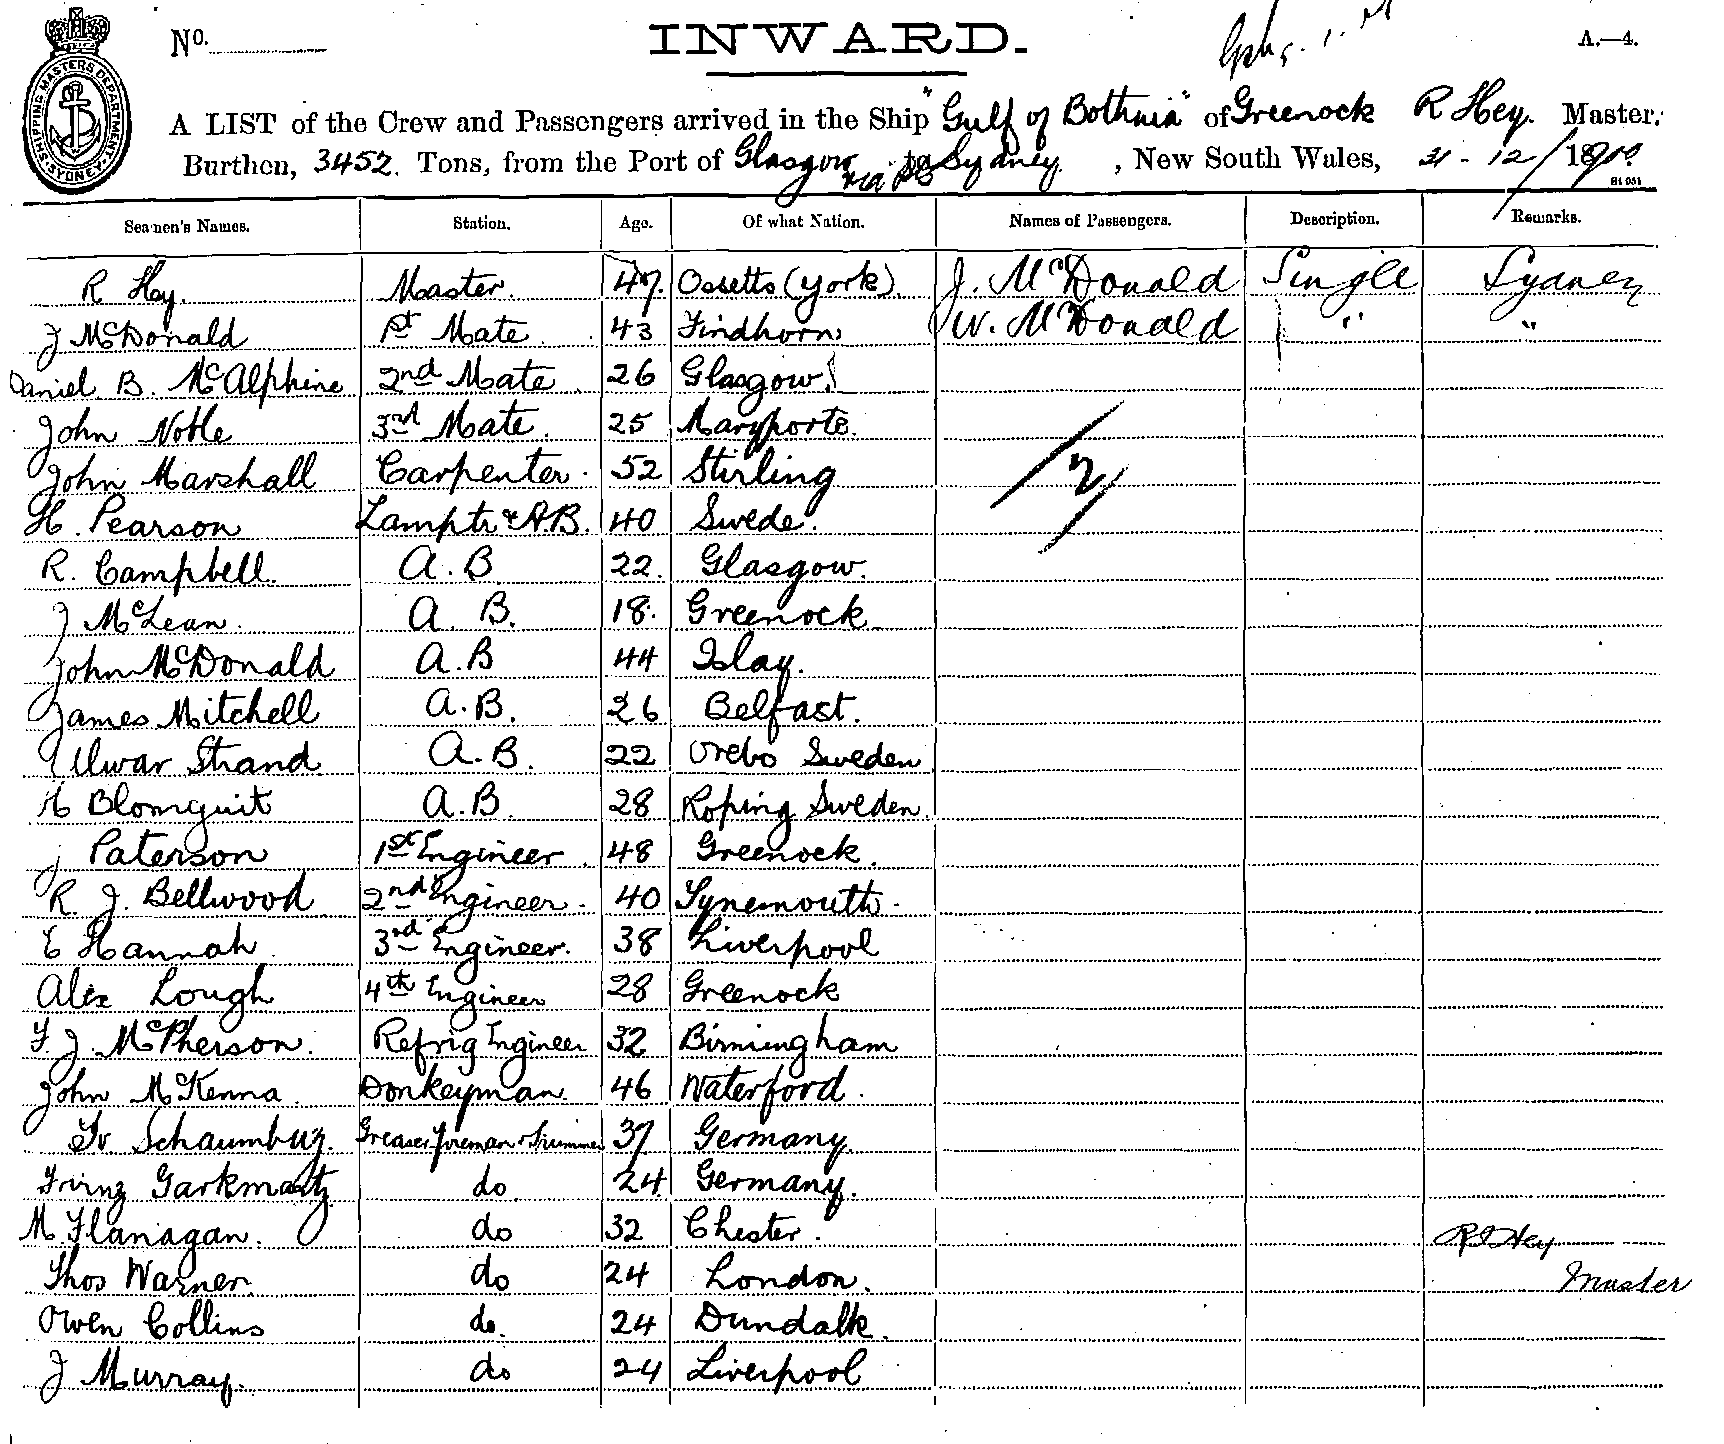 SHIPPING MASTERS DEPARTMENT SYDNEY
No. INWARD. A.—4.
A LIST of the Crew and Passengers arrived in the Ship "Gulf of Bothnia" of Greenock R Hey. Master.
Burthen, 3452. Tons, from the Port of Glasgow to Sydney. , New South Wales, 21-12/1900
Seamen's Names. Station. Age. Of what Nation. Names of Passengers. Description. Remarks.
R Hey. Master. 47. Ossetts (york). J. McDonald Single Sydney
J McDonald 1st Mate 43 Findhorn W. McDonald " "
Daniel B. McAlphine 2nd Mate 26 Glasgow.
John Noble 3rd Mate. 25 Maryporte.
John Marshall Carpenter. 52 Stirling
2
H. Pearson Lamptr & A.B. 40 Swede.
R. Campbell. A.B 22. Glasgow.
J McLean. A. B. 18. Greenock
John McDonald A.B 44 Islay.
James Mitchell A.B. 26 Belfast.
Ulwar Strand A.B. 22 Orebo Sweden
H Blomquit A.B 28 Koping Sweden.
J Paterson 1st Engineer 48 Greenock.
R. J. Bellwood 2nd Engineer. 40 Tynemouth.
E Hannah 3rd Engineer. 38 Liverpool
Alex Lough 4th Engineer 28 Greenock
F J. McPherson. Refrig Engineer 32 Birmingham
John McKenna. Donkeyman. 46 Waterford.
Schaumburg. Greaser, foreman & Trimmer 37 Germany.
Garkmartz do 24 Germany.
M Flanagan. do 32 Chester. R Hey
Thos Warner. do 24 London. Master
Owen Collins do. 24 Dundalk.
J Murray. do 24 Liverpool